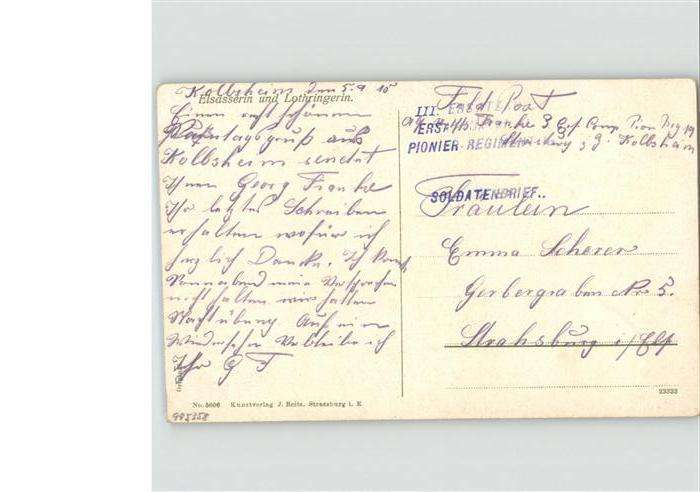 Kolbsheim den 5.9 15
Elsässerin und Lothringerin.
Einen recht schönen
Sonntagsgruß aus
Kolbsheim sendet
Ihnen Georg Franke
Ihr letztes Schreiben
erhalten wofür ich
herzlich Danke. Ich konnt
Sonnabend mein Versprechen
nicht halten wir hatten
Nachtübung Auf ein
Wiedersehn Verbleibe ich
Ihr G F
No. 5606 Kunstverlag J. Reitz, Strassburg i. E.
995358
Feld Post
III. ERSATZ
Franke 3 Ers Komp Pion Reg 19
ERSATZ
Strassburg z. Z. Kolbsheim
PIONIER-REGIMENT
SOLDATENBRIEF..
Fräulein
Emma Scherer
Gerbergraben Nr. 5.
Strahsburg i/Els
23333